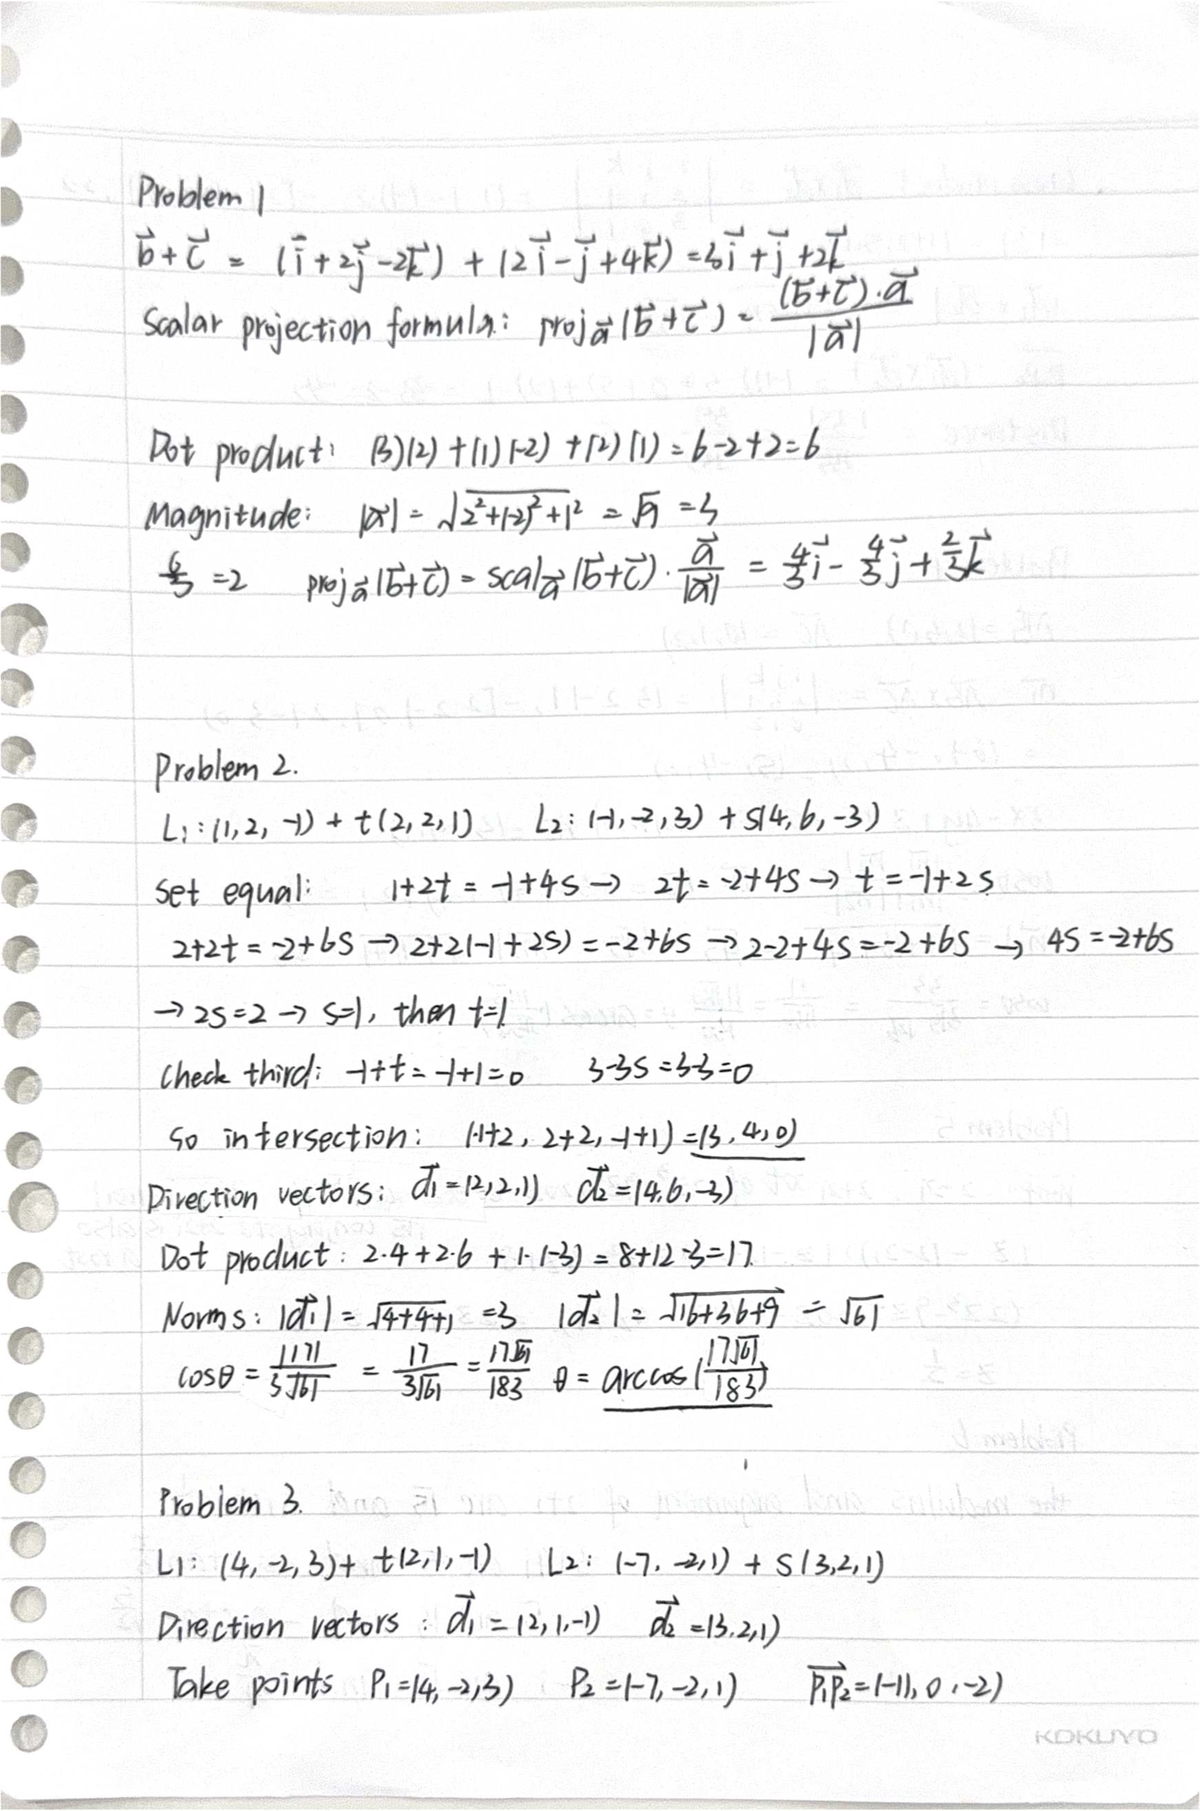 Problem 1
b⃗+c⃗ = (i⃗+2j⃗-2k⃗) + (2i⃗-j⃗+4k⃗) = 3i⃗+j⃗+2k⃗
Scalar projection formula: proj a⃗ (b⃗+c⃗) = (b⃗+c⃗)·a⃗ / |a⃗|
Dot product: (3)(2) + (1)(-2) + (2)(1) = 6-2+2=6
Magnitude: |a⃗| = √(2²+(-2)²+1²) = √9 = 3
6/3 = 2 proj a⃗ (b⃗+c⃗) = scal a⃗ (b⃗+c⃗) · a⃗/|a⃗| = 4/3 i⃗ - 4/3 j⃗ + 2/3 k⃗
Problem 2.
L₁: (1, 2, -1) + t(2, 2, 1) L₂: (-1, -2, 3) + s(4, 6, -3)
Set equal: 1+2t = -1+4s → 2t = -2+4s → t = -1+2s
2+2t = -2+6s → 2+2(-1+2s) = -2+6s → 2-2+4s = -2+6s → 4s = -2+6s
→ 2s=2 → s=1, then t=1
Check third: -1+t = -1+1=0 3-3s = 3-3=0
So intersection: (1+2, 2+2, -1+1) = (3, 4, 0)
Direction vectors: d₁⃗ = (2, 2, 1) d₂⃗ = (4, 6, -3)
Dot product: 2·4+2·6 + 1·(-3) = 8+12-3=17
Norms: |d₁⃗| = √(4+4+1) = 3 |d₂⃗| = √(16+36+9) = √61
cosθ = |17| / 3√61 = 17 / 3√61 = 17√61 / 183 θ = arccos(17√61 / 183)
Problem 3.
L1: (4, -2, 3) + t(2, 1, -1) L2: (-7, -2, 1) + s(3, 2, 1)
Direction vectors: d₁⃗ = (2, 1, -1) d₂⃗ = (3, 2, 1)
Take points P₁ = (4, -2, 3) P₂ = (-7, -2, 1) P₁P₂⃗ = (-11, 0, -2)
KOKUYO